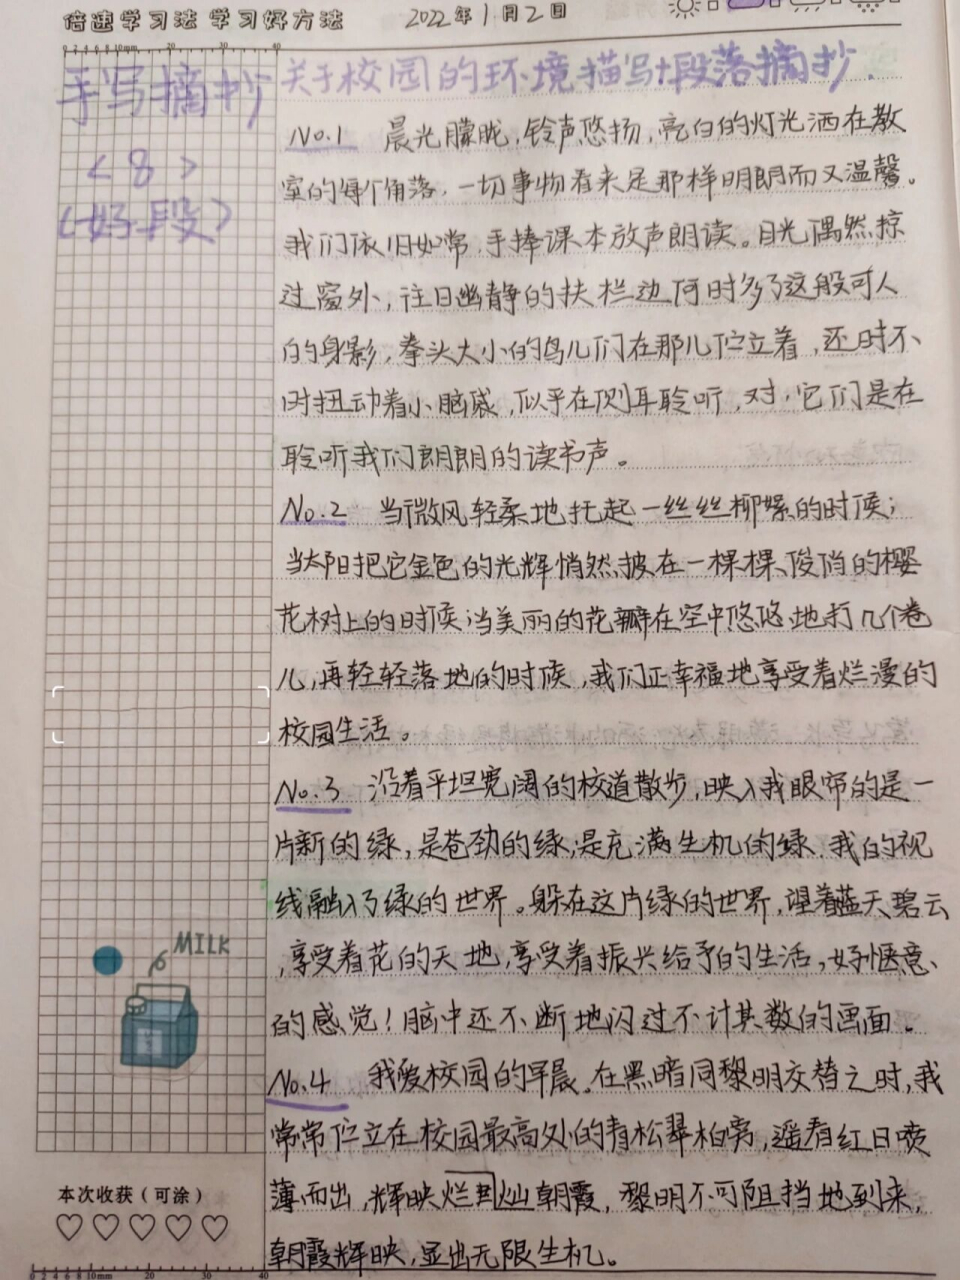 倍速学习法 学习好方法
2022年1月2日
手写摘抄
<8>
(好段)
关于校园的环境描写段落摘抄.
No.1 晨光朦胧,铃声悠扬,亮白的灯光洒在教
室的每个角落,一切事物看来是那样明朗而又温馨。
我们依旧如常,手捧课本放声朗读。目光偶然掠
过窗外,往日幽静的扶栏边何时多了这般可人
的身影,拳头大小的鸟儿们在那儿伫立着,还时不
时扭动着小脑袋,似乎在侧耳聆听,对,它们是在
聆听我们朗朗的读书声。
No.2 当微风轻柔地托起一丝丝柳的时候;
当太阳把它金色的光辉悄然披在一棵棵俊俏的樱
花树上的时候;当美丽的花瓣在空中悠悠地打几个卷
儿,再轻轻落地的时候,我们正幸福地享受着烂漫的
校园生活。
No.3 沿着平坦宽阔的校道散步,映入我眼帘的是一
片新的绿,是苍劲的绿,是充满生机的绿.我的视
线融入了绿的世界。躲在这片绿的世界,望着蓝天碧云
,享受着花的天地,享受着振兴给予的生活,好惬意
的感觉!脑中还不断地闪过不计其数的画面。
No.4 我爱校园的早晨.在黑暗同黎明交替之时,我
常常伫立在校园最高处的青松翠柏旁,遥看红日喷
薄而出,辉映烂灿朝霞,黎明不可阻挡地到来,
朝霞辉映,显出无限生机。
MILK
本次收获(可涂)